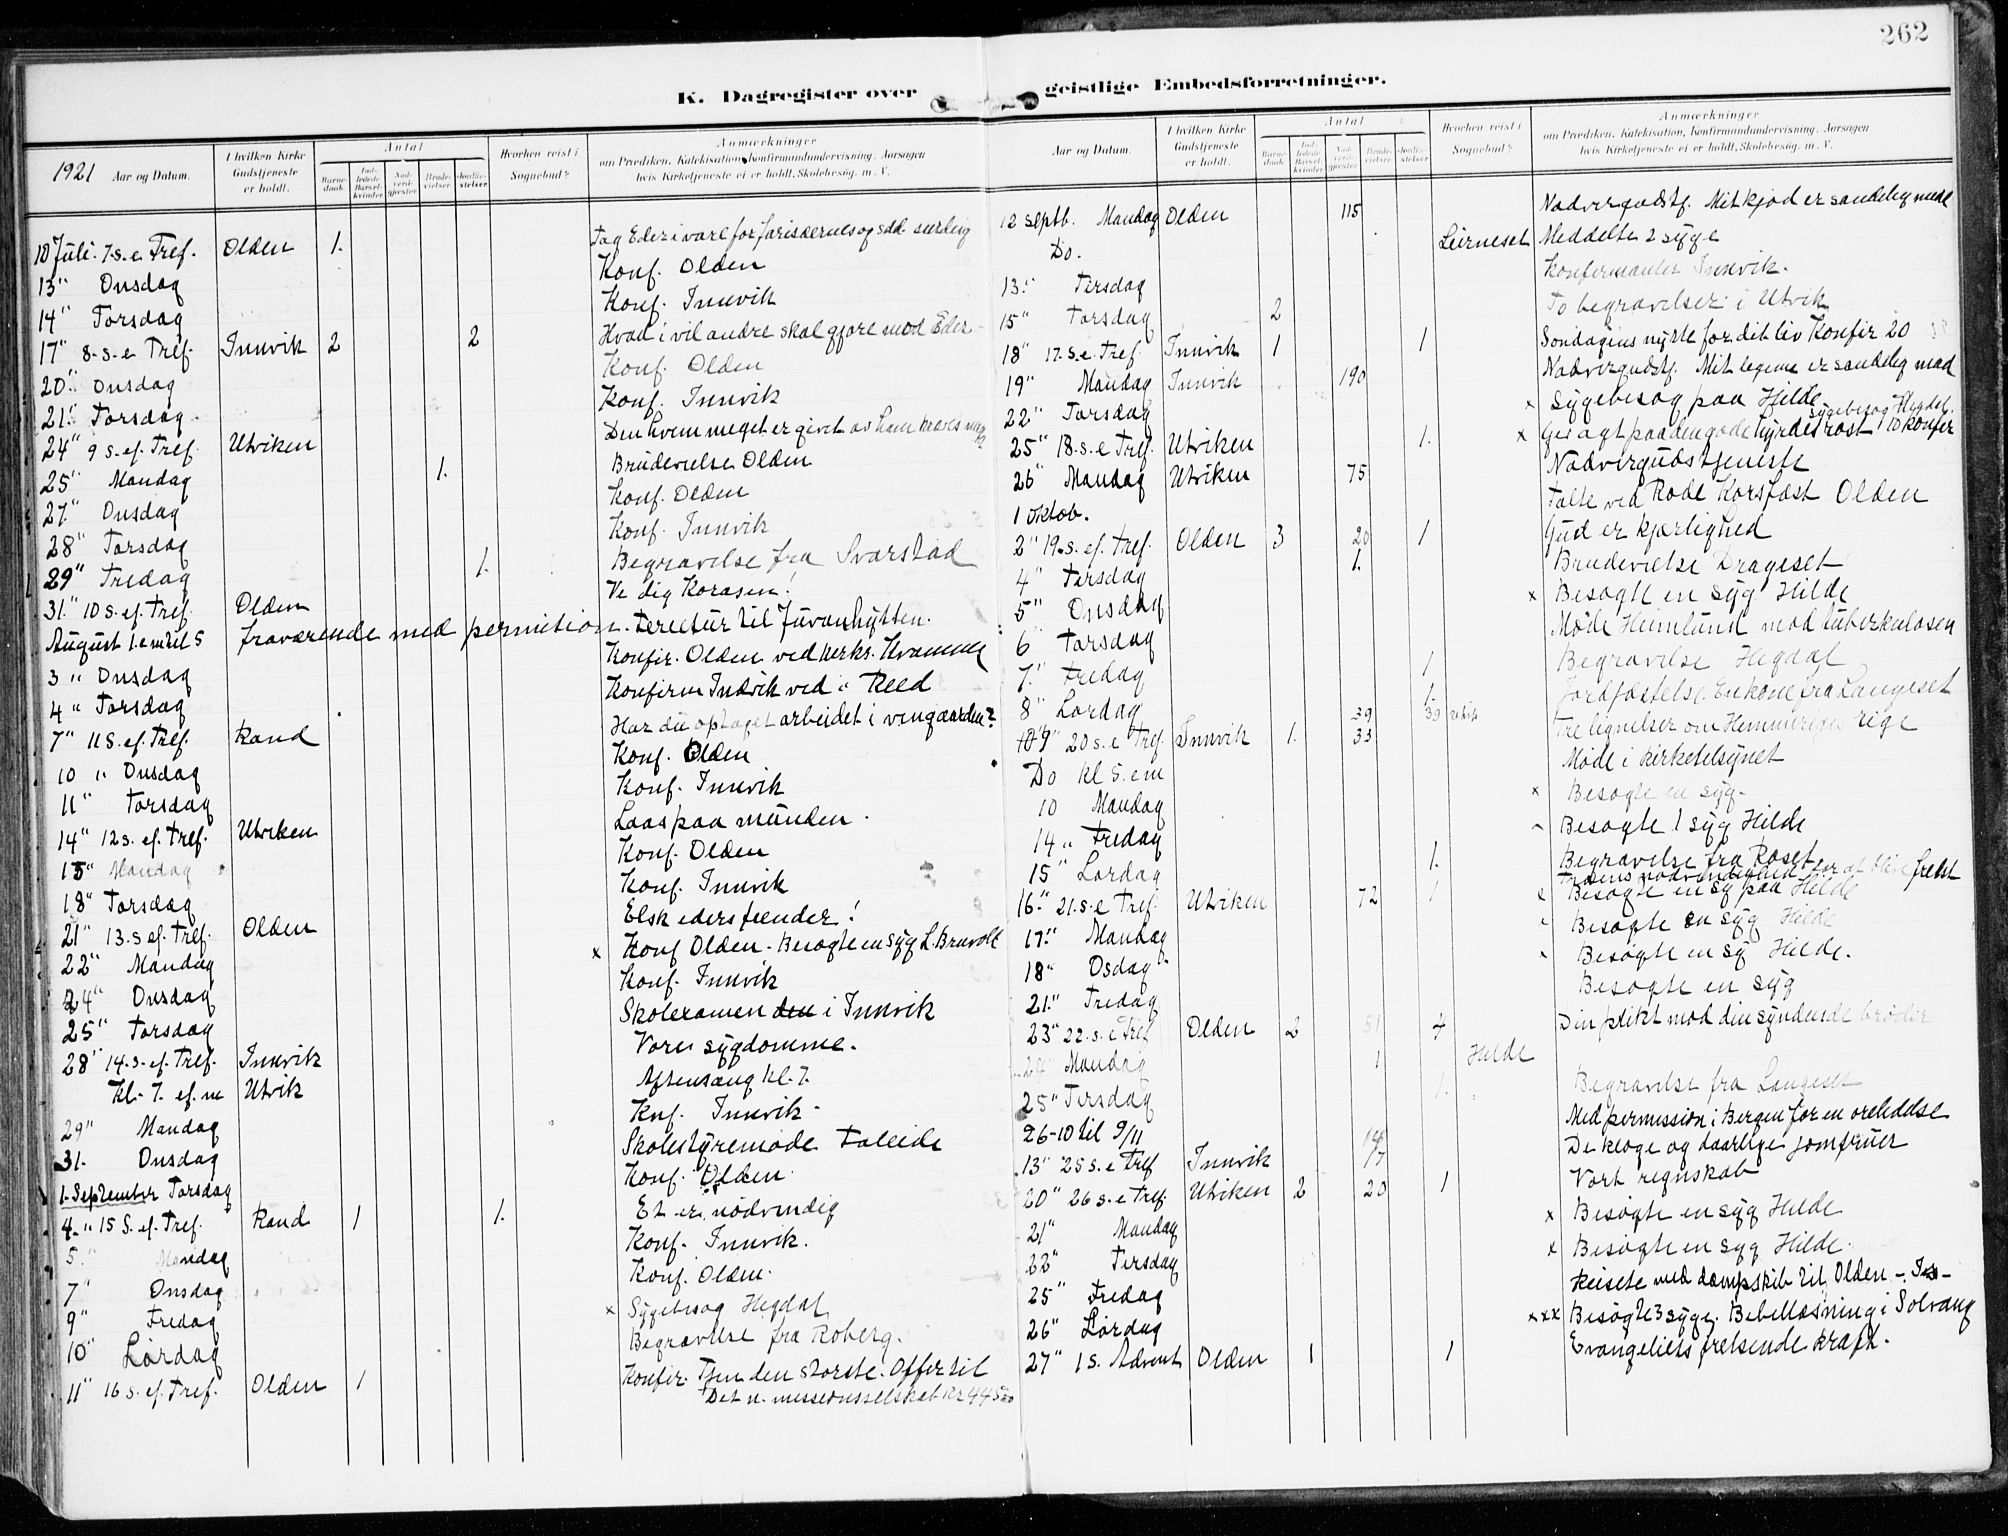 262
K. Dagregister over geistlige Embedsforretninger.
1921 Aar og Datum.
I hvilken Kirke Gudstjeneste er holdt.
Antal
Barne-daab.
Ind-ledede Barsel-kvinder
Nad-verd-gjester
Brude-vielser
Jordfæ-stelser
Hvorhen reist i Sognebud?
Anmærkninger
om Prædiken, Katekisation, Konfirmandundervisning, Aarsagen
hvis Kirketjeneste ei er holdt, Skolebesøg, m. V.
10 Juli. 7. s. e. Tref. Olden 1. Tag Eder i vare for farisæernes og sdd. surdeig
13" Onsdag Konf. Olden
14" Torsdag Konf. Innvik
17" 8. s. e Tref. Innvik 2 2 Hvad i vil andre skal gjøre mod Eder
20" Onsdag Konf. Olden
21" Torsdag Konf. Innvik
24" 9 s. ef. Tref. Utviken Den hvem meget er givet av ham kræves meget
25" Mandag 1. Brudevielse Olden
27" Onsdag Konf. Olden
28" Torsdag Konf. Innvik
29" Fredag 1. Begravelse fra Svarstad
31." 10 s. ef. Tref. Olden Ve dig Korasen!
August 1. em til 5 fraværende med permition. til Juvasshytten.
3 " Onsdag Konfir. Olden ved kirks. Kvamme
4 " Torsdag Konfirm Indvik ved " Reed
7" 11 s. ef. Tref. Rand Har du optaget arbeidet i vingaarden?
10 " Onsdag Konf. Olden
11" Torsdag Konf. Innvik
14" 12 s. ef. Tref. Utviken Laas paa munden.
15" Mandag Konf. Olden
18" Torsdag Konf. Innvik
21" 13. s ef. Tref. Olden Elsk eders fiender!
22" Mandag x Konf Olden - Besøgte en syg L. Bruvolt
24" Onsdag Konf. Innvik
25" Torsdag Skolexamen i Innvik
28" 14. s. ef. Tref. Innvik Vores sygdomme.
Kl. 7. ef. m Utvik Aftensang kl. 7.
29" Mandag Knf. Innvik
31. Onsdag Skolestyremøde Faleide
1. September Torsdag Konf. Olden
4. " 15 S. ef. Tref. Rand 1 1. Et er nødvendig
5." Mandag Konf. Innvik.
7" Onsdag Konf. Olden.
9" Fredag x Sygebesøg Hegdal
10" Lørdag Begravelse fra Roberg.
11" 16 s. ef. Tref. Olden 1 Konfir. Tjen den største. Offer til
Det n. missionsselskab kr 445
Aar og Datum.
I hvilken Kirke Gudstjeneste er holdt.
Antal
Barne-daab.
Ind-ledede Barsel-kvinder
Nad-verd-gjester
Brude-vielser
Jordfæ-stelser
Hvorhen reist i Sognebud?
Anmærkninger
om Prædiken, Katekisation, Konfirmandundervisning, Aarsagen
hvis Kirketjeneste ei er holdt, Skolebesøg, m. V.
12 septb. Mandag Olden 115 Nadvergudstj. Mit kjød er sandelig mede
Do. Meddelte 2 syge
13." Tirsdag Konfirmanter Innvik.
15" Torsdag 2 To begravelser i Utvik
18" 17. s. e. Tref. Innvik 1 1 Søndagens nytte for det liv Konfir 20
19" Mandag Innvik 190 Nadvergudstj. Mit legeme er sandelig mad
22" Torsdag x Sygebesøg paa Hilde.
Sygebesøg Hegdal.
25" 18. s. e Tref. Utviken 1. x Gir agt paa den gode hyrdes røst 10 konfir
26" Mandag Utviken 75 Nadvergudstjeneste
1 Oktob. Talte ved Røde Korsfest Olden
2" 19. s. ef. Tref. Olden 3 20 1 Gud er kjærlighed
4" Tirsdag 1. Brudevielse Drageset
5" Onsdag x Besøgte en syg Hilde
6" Torsdag Møde Heimlund mod tuberkulosen
7." Fredag 1 Begravelse Hegdal
8" Lørdag 1. Jordfæstelse Enkone fra Langeset
9" 20 s. e Tref. Innvik 1. 39 33 39 Tre lignelser om Himmeriges rige
Do kl 5. em Møde i kirketilsynet
10 Mandag x Besøgte en syg.
14 " Fredag Besøgte 1 syg Hilde
15" Lørdag 1. Begravelse fra Roset
16." 21. s. e Tref. Utviken 72 1 Troens nødvendighed for at blive frelst
Besøgte en sy paa Hilde
17." Mandag Besøgte en syg Hilde
18" Osdag Besøgte en sy Hilde.
21." Fredag Besøgte en syg
23" 22. s. e Tref Olden 2 51 4 Din plikt mod din syndende broder
24" Mandag 1 Hilde
25" Tirsdag 1. Begravelse fra Langeset
26-10 til 9/11 Med permission i Bergen for en
13" 25 s. e Tref Innvik De kloge og daarlige jomfruer
20" 26 s. e Tref. Utviken 2 20 1 Vort regnskab
21" Mandag x Besøgte en syg Hilde
22" Tirsdag x Besøgte en syg Hilde.
25" Fredag Reisete med dampskib til Olden
26" Lørdag xxx Besøgte 3 syge. Bibellæsning i Solvang
27" 1 s. Advent Olden 1 1 Evangeliets frelsende kraft.